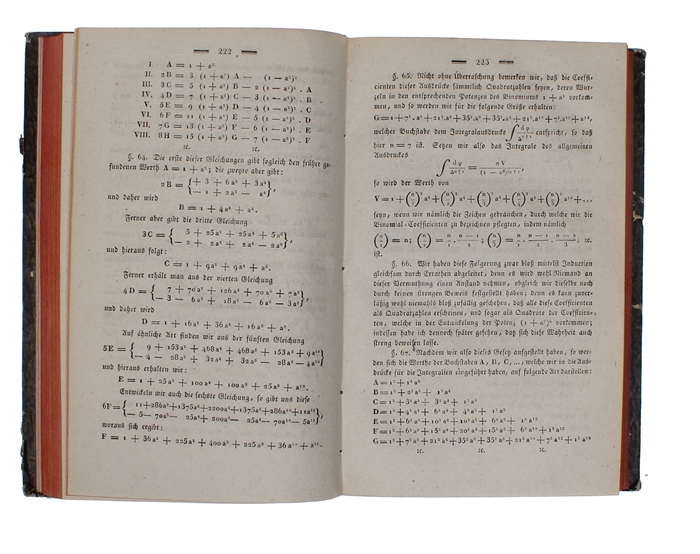 — 222 —
I. A = 1 + a²
II. 2B = 3 (1 + a²) A — (1 — a²)²
III. 3C = 5 (1 + a²) B — 2 (1 — a²)² . A
IV. 4D = 7 (1 + a²) C — 3 (1 — a²)² . B
V. 5E = 9 (1 + a²) D — 4 (1 — a²)² . C
VI. 6F = 11 (1 + a²) E — 5 (1 — a²)² . D
VII. 7G = 13 (1 + a²) F — 6 (1 — a²)² . E
VIII. 8H = 15 (1 + a²) G — 7 (1 — a²)² . F
ꝛc. ꝛc.
§. 64. Die erste dieser Gleichungen gibt sogleich den früher ge-
fundenen Werth A = 1 + a²; die zweyte aber gibt:
2B = { + 3 + 6a² + 3a⁴
— 1 + 2a² — a⁴ } ,
und daher wird
B = 1 + 4a² + a⁴.
Ferner aber gibt die dritte Gleichung
3C = { 5 + 25a² + 25a⁴ + 5a⁶
— 2 + 2a² + 2a⁴ — 2a⁶ } ,
und hieraus folgt:
C = 1 + 9a² + 9a⁴ + a⁶.
Ferner erhält man aus der vierten Gleichung
4D = { 7 + 70a² + 126a⁴ + 70a⁶ + 7a⁸
— 3 — 6a² + 18a⁴ — 6a⁶ — 3a⁸ }
und daher wird
D = 1 + 16a² + 36a⁴ + 16a⁶ + a⁸.
Auf ähnliche Art finden wir aus der fünften Gleichung
5E = { 9 + 153a² + 468a⁴ + 468a⁶ + 153a⁸ + 9a¹⁰
— 4 — 28a² + 32a⁴ + 32a⁶ — 28a⁸ — 4a¹⁰ }
und hieraus erhalten wir:
E = 1 + 25a² + 100a⁴ + 100a⁶ + 25a⁸ + a¹⁰.
Entwickeln wir auch die sechste Gleichung, so gibt uns diese
6F = { 11+286a²+1375a⁴+2200a⁶+1375a⁸+286a¹⁰+11a¹²
— 5— 70a²— 25a⁴+200a⁶— 25a⁸— 70a¹⁰— 5a¹² }
woraus sich ergibt:
F = 1 + 36a² + 225a⁴ + 400a⁶ + 225a⁸ + 36a¹⁰ + a¹².
— 223 —
§. 65. Nicht ohne Überraschung bemerken wir, daß die Coeffi-
cienten dieser Ausdrücke sämmtlich Quadratzahlen seyen, deren Wur-
zeln in den entsprechenden Potenzen des Binomiums 1 + a² vorkom-
men, und so werden wir für die folgende Größe erhalten:
G = 1 + 7².a² + 21².a⁴ + 35².a⁶ + 35².a⁸ + 21².a¹⁰ + 7².a¹² + a¹⁴,
welcher Buchstabe dem Integralausdrucke ∫ dφ/Δⁿ⁺¹ entspricht, so daß
hier n = 7 ist. Setzen wir also das Integrale des allgemeinen
Ausdruckes
∫ dφ/Δⁿ⁺¹ = πV/(1 — a²)²ⁿ⁺¹,
so wird der Werth von
V = 1 + (n/1)² a² + (n/2)² a⁴ + (n/3)² a⁶ + (n/4)² a⁸ + (n/5)² a¹⁰ + ...
seyn, wenn wir nämlich die Zeichen gebrauchen, durch welche wir die
Binomial-Coefficienten zu bezeichnen pflegten, indem nämlich
(n/1) = n; (n/2) = n/1 . n — 1/2; (n/3) = n/1 . n — 1/2 . n — 2/3; ꝛc.
ist.
§. 66. Wir haben diese Folgerung zwar bloß mittelst Induction
gleichsam durch Errathen abgeleitet; denn es wird wohl Niemand an
dieser Vermuthung einen Anstand nehmen, obgleich wir dieselbe noch
durch keinen strengen Beweis festgestellt haben; denn es kann zuver-
läßig wohl niemahls bloß zufällig geschehen, daß alle diese Coefficienten
als Quadratzahlen erscheinen, und sogar als Quadrate der Coefficien-
ten, welche in der Entwicklung der Potenz (1 + a²)ⁿ vorkommen;
indessen habe ich dennoch später gesehen, daß sich diese Wahrheit auch
streng beweisen lasse.
§. 67. Nachdem wir also dieses Gesetz aufgestellt haben, so wer-
den sich die Werthe der Buchstaben A, B, C, ..., welche wir in die Aus-
drücke für die Integralien eingeführt haben, auf folgende Art darstellen:
A = 1² + 1²a²
B = 1² + 2²a² + 1²a⁴
C = 1² + 3²a² + 3²a⁴ + 1²a⁶
D = 1² + 4²a² + 6²a⁴ + 4²a⁶ + 1²a⁸
E = 1² + 5²a² + 10²a⁴ + 10²a⁶ + 5²a⁸ + 1²a¹⁰
F = 1² + 6²a² + 15²a⁴ + 20²a⁶ + 15²a⁸ + 6²a¹⁰ + 1²a¹²
G = 1² + 7²a² + 21²a⁴ + 35²a⁶ + 35²a⁸ + 21²a¹⁰ + 7²a¹² + 1²a¹⁴
ꝛc. ꝛc.